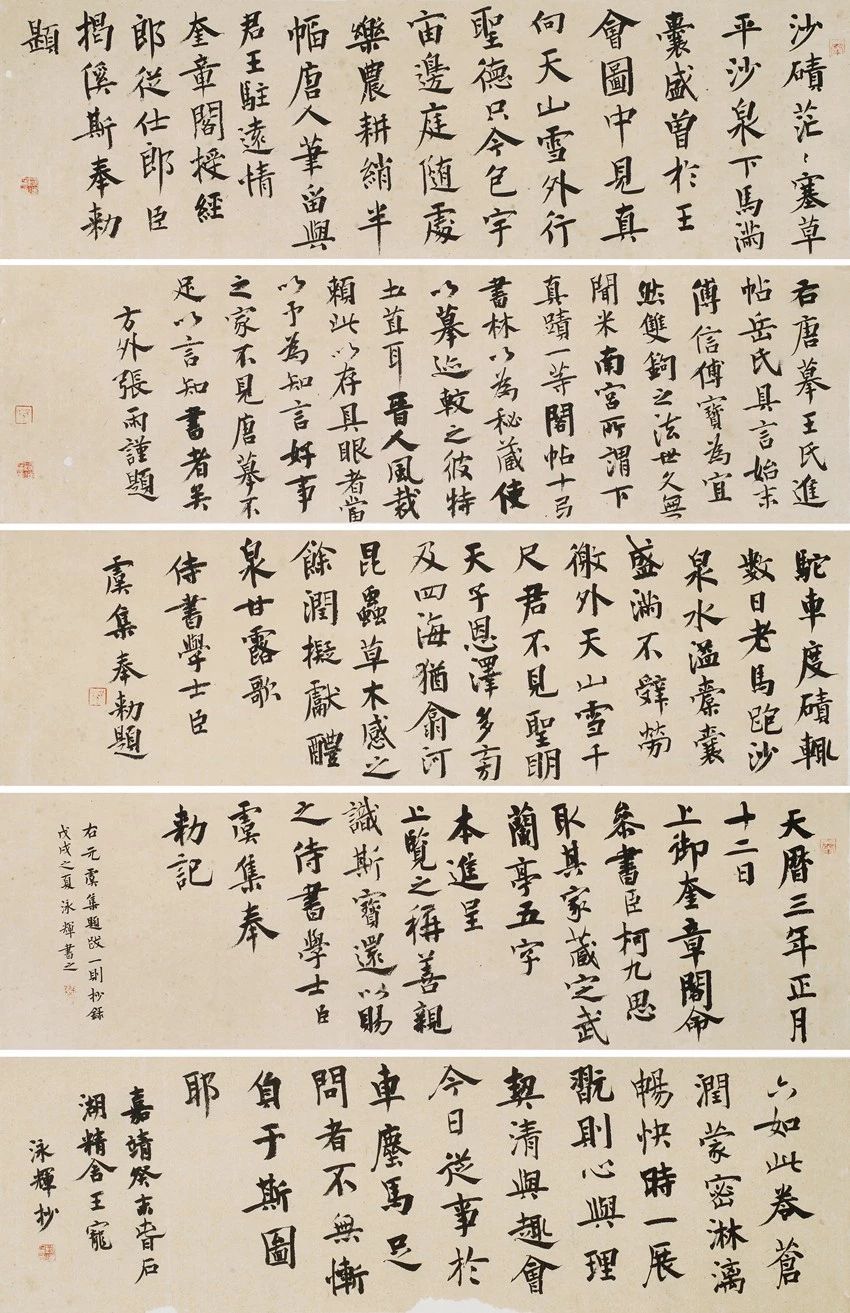 沙磧茫〻塞草
平沙泉下馬滿
囊盛曾於王
會圖中見真
向天山雪外行
聖德只今包宇
宙邊庭隨處
樂農耕綃半
幅唐人筆留與
君王駐遠情
奎章閣授經
郎從仕郎臣
揭傒斯奉勅
題
右唐摹王氏進
帖岳氏具言始末
傳信傳寶為宜
然雙鉤之法世久無
聞米南宮所謂下
真蹟一等閣帖十弓
書林以為秘藏使
以摹迹較之彼特
土苴耳晉人風裁
賴此以存具眼者當
以予為知言好事
之家不見唐摹不
足以言知書者矣
方外張雨謹題
駝車度磧輒
數日老馬跑沙
泉水溢橐囊
盛滿不辭勞
徼外天山雪千
尺君不見聖明
天子恩澤多旁
及四海猶翕河
昆蟲草木感之
餘潤擬獻醴
泉甘露歌
侍書學士臣
虞集奉勅題
天曆三年正月
十二日
上御奎章閣命
參書臣柯九思
取其家藏定武
蘭亭五字
本進呈
上覽之稱善親
識斯寶還以賜
之侍書學士臣
虞集奉
勅記
右元虞集題跋一則抄錄
戊戌之夏泳輝書之
六如此卷蒼
潤蒙密淋漓
暢快時一展
翫則心與理
契清與趣會
今日從事於
車塵馬足
間者不無慚
負于斯圖
耶
嘉靖癸未嘗石
湖精舍王寵
泳輝抄